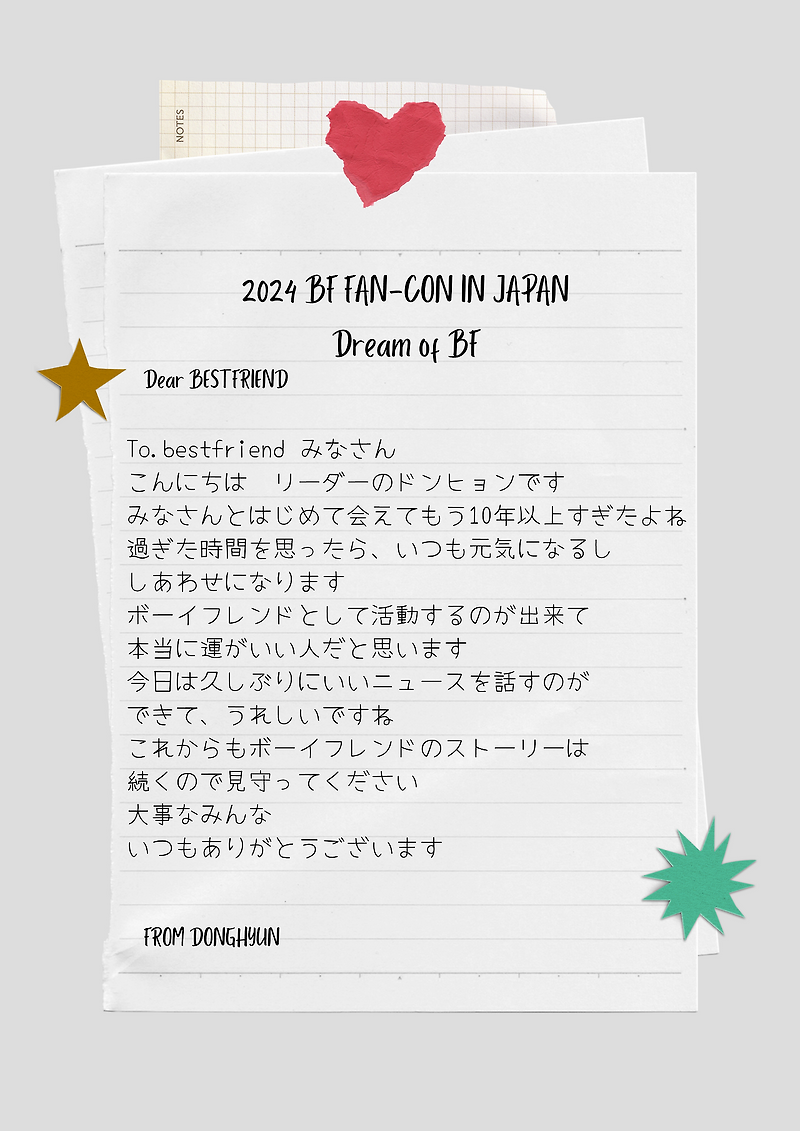 NOTES
2024 BF FAN-CON IN JAPAN
Dream of BF
Dear BESTFRIEND
To.bestfriend みなさん
こんにちは　リーダーのドンヒョンです
みなさんとはじめて会えてもう10年以上すぎたよね
過ぎた時間を思ったら、いつも元気になるし
しあわせになります
ボーイフレンドとして活動するのが出来て
本当に運がいい人だと思います
今日は久しぶりにいいニュースを話すのが
できて、うれしいですね
これからもボーイフレンドのストーリーは
続くので見守ってください
大事なみんな
いつもありがとうございます
FROM DONGHYUN